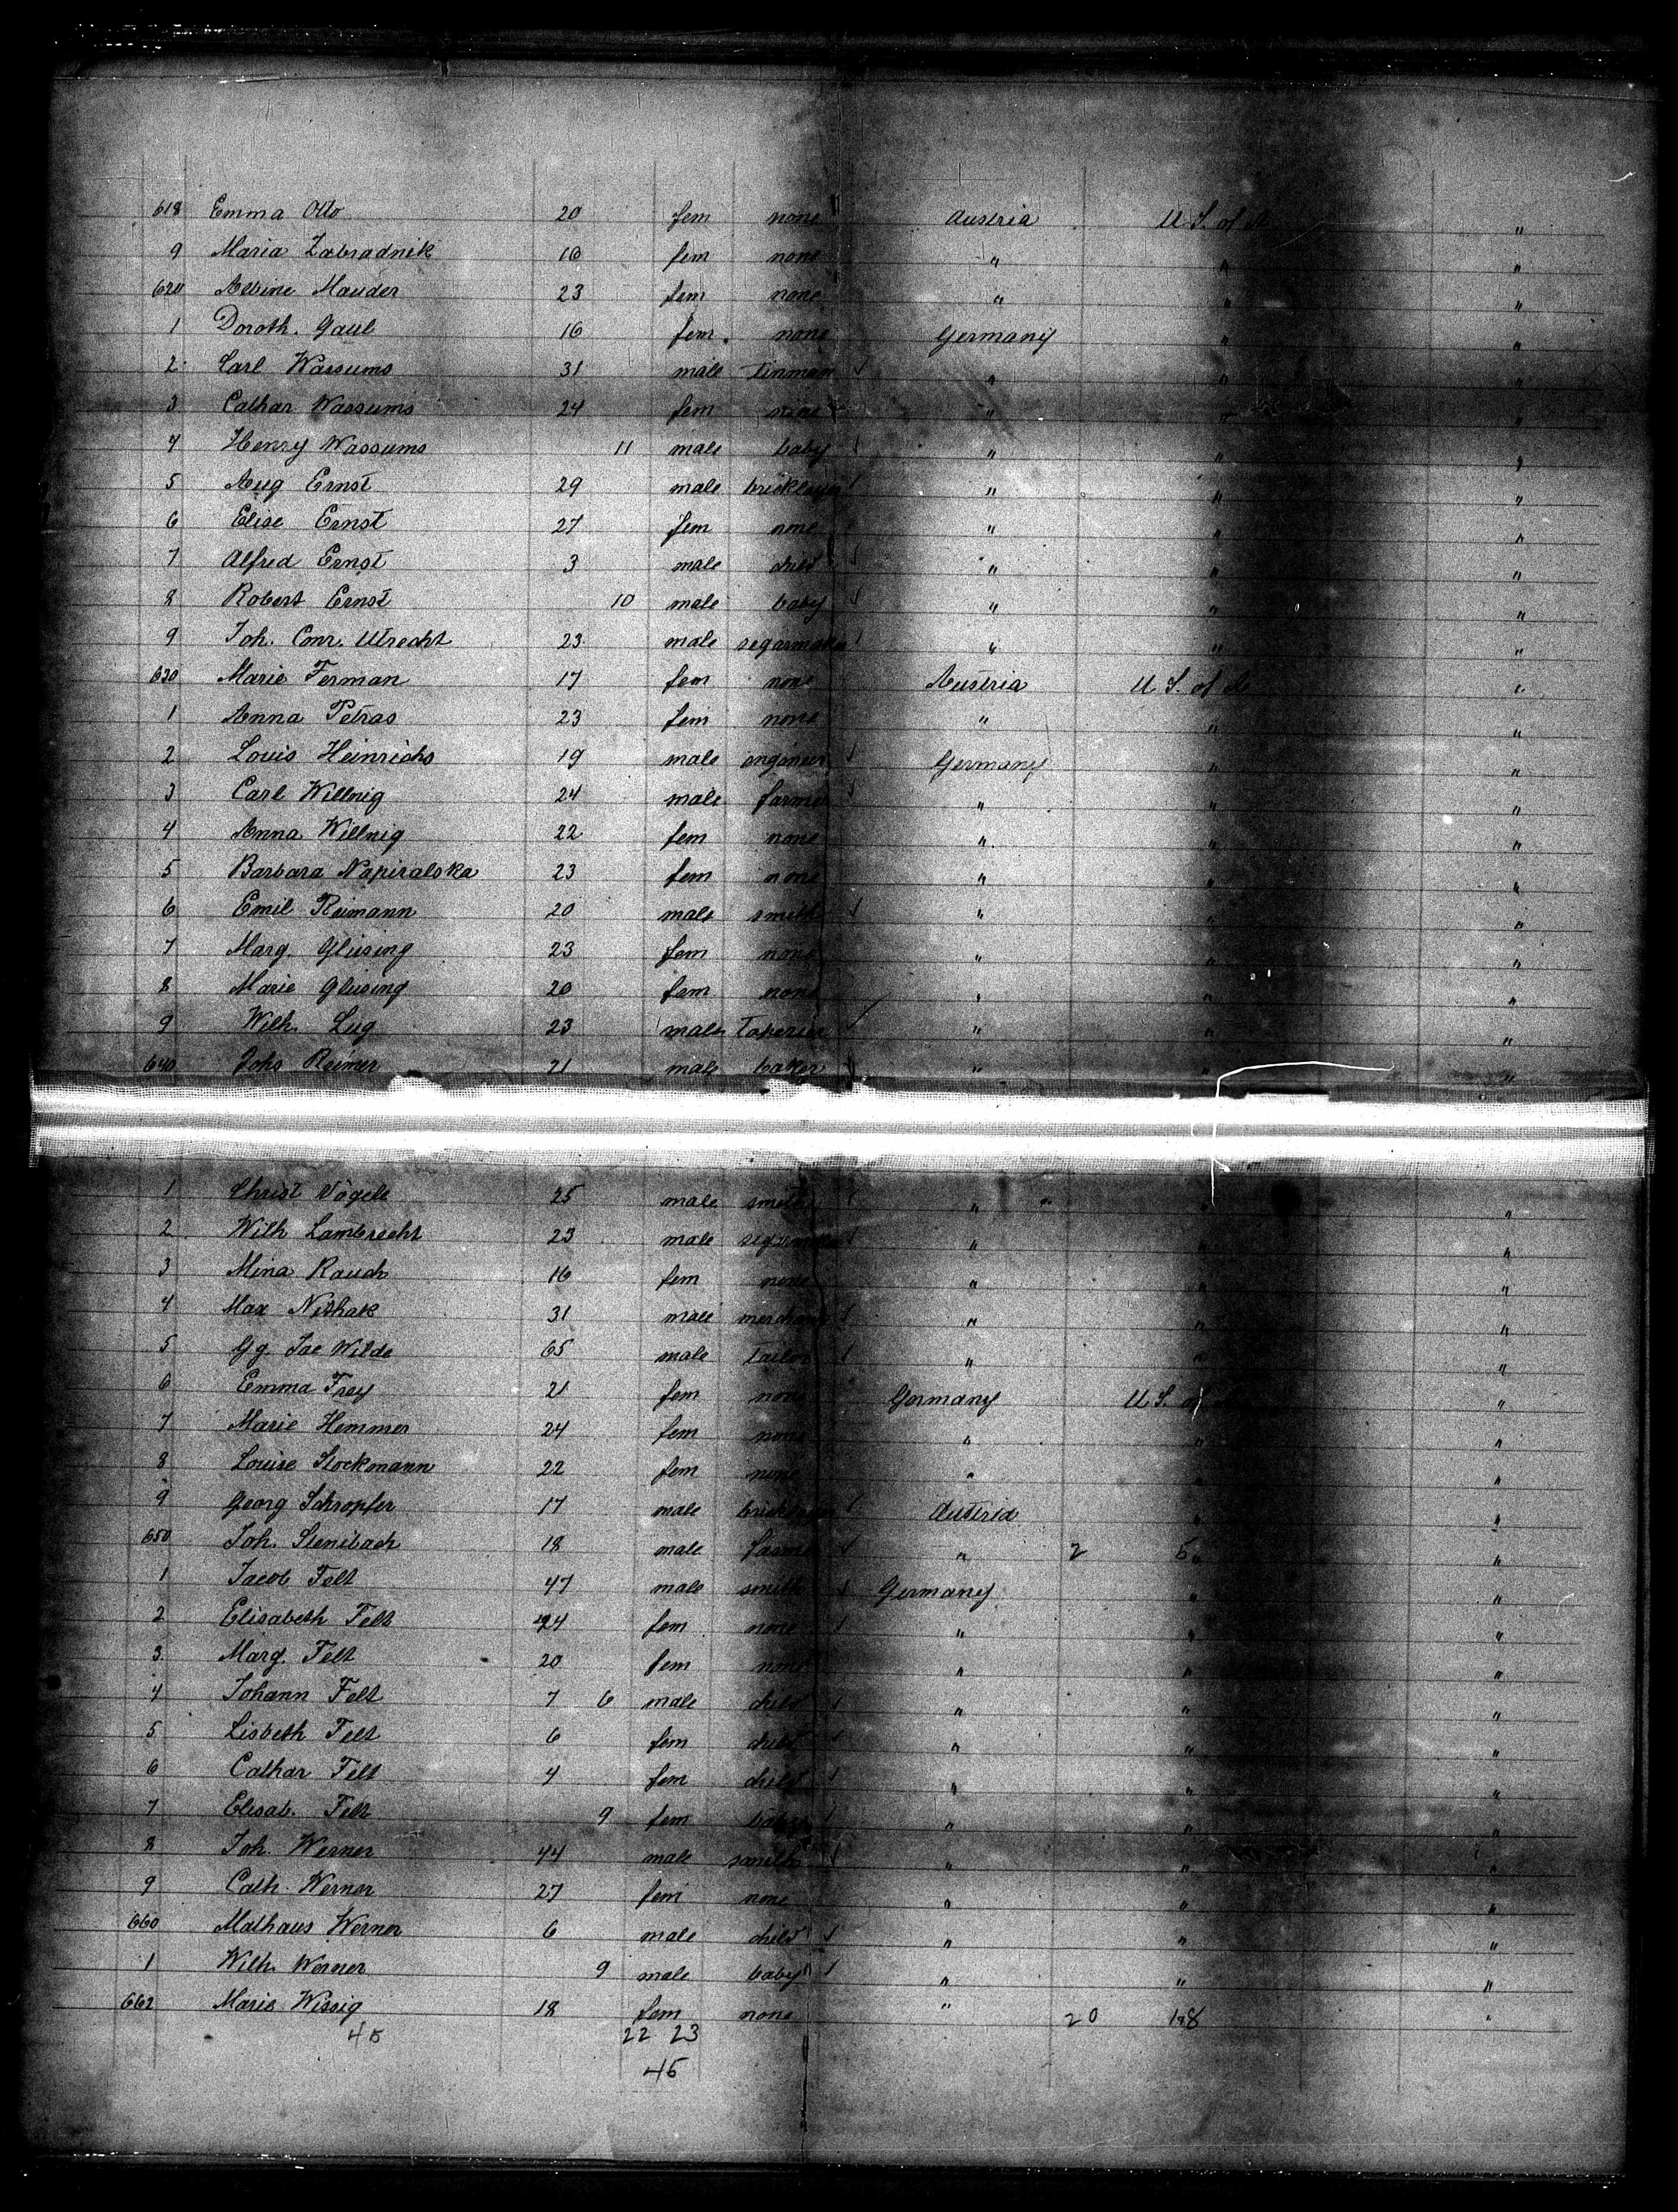 618 Emma Otto 20 fem none Austria U S. of A "
9 Maria Zabradnik 16 fem none " " "
620 Albine Mauder 23 fem none " " "
1 Doroth. Gaul 16 fem. none Germany " "
2 Carl Wassums 31 male tinman " " "
3 Cathar Wassums 24 fem none " " "
4 Henry Wassums 11 male baby " " "
5 Aug Ernst 29 male bricklayer " " "
6 Elise Ernst 27 fem none " " "
7 Alfred Ernst 3 male child " " "
8 Robert Ernst 10 male baby " " "
9 Joh. Conr. Utrecht 23 male segarmaker " " "
630 Marie Ferman 17 fem none Austria U S. of A "
1 Anna Petras 23 fem none " " "
2 Louis Heinrichs 19 male engineer Germany " "
3 Carl Willnig 24 male farmer " " "
4 Anna Willnig 22 fem none " " "
5 Barbara Napiralska 23 fem none " " "
6 Emil Reimann 20 male smith " " "
7 Marg. Glüsing 23 fem none " " "
8 Marie Glüsing 20 fem none " " "
9 Wilh. Lug 23 male Taperier " " "
640 Johs Reimer 21 male baker " " "
1 Christ Vögele 25 male smith " " "
2 Wilh Lambrecht 23 male segarmaker " " "
3 Mina Rauch 16 fem none " " "
4 Max 31 male merchant " " "
5 Gg. Jac Wilde 65 male tailor " " "
6 Emma Frey 21 fem none Germany U S. of A "
7 Marie Hemmer 24 fem none " " "
8 Louise Stockmann 22 fem none " " "
9 Georg Schropfer 17 male bricklayer Austria " "
650 Joh. 18 male farmer " 2 5 " "
1 Jacob Felt 47 male smith Germany " "
2 Elisabeth Felt 24 fem none " " "
3 Marg. Felt 20 fem none " " "
4 Johann Felt 7 6 male child " " "
5 Lisbeth Felt 6 fem child " " "
6 Cathar Felt 4 fem child " " "
7 Elisab. Felt 9 fem baby " " "
8 Joh. Werner 44 male smith " " "
9 Cath. Werner 27 fem none " " "
660 Mathaus Werner 6 male child " " "
1 Wilh. Werner 9 male baby " " "
662 Marie Wissig 18 fem none " 20 198 "
45 22 23
45